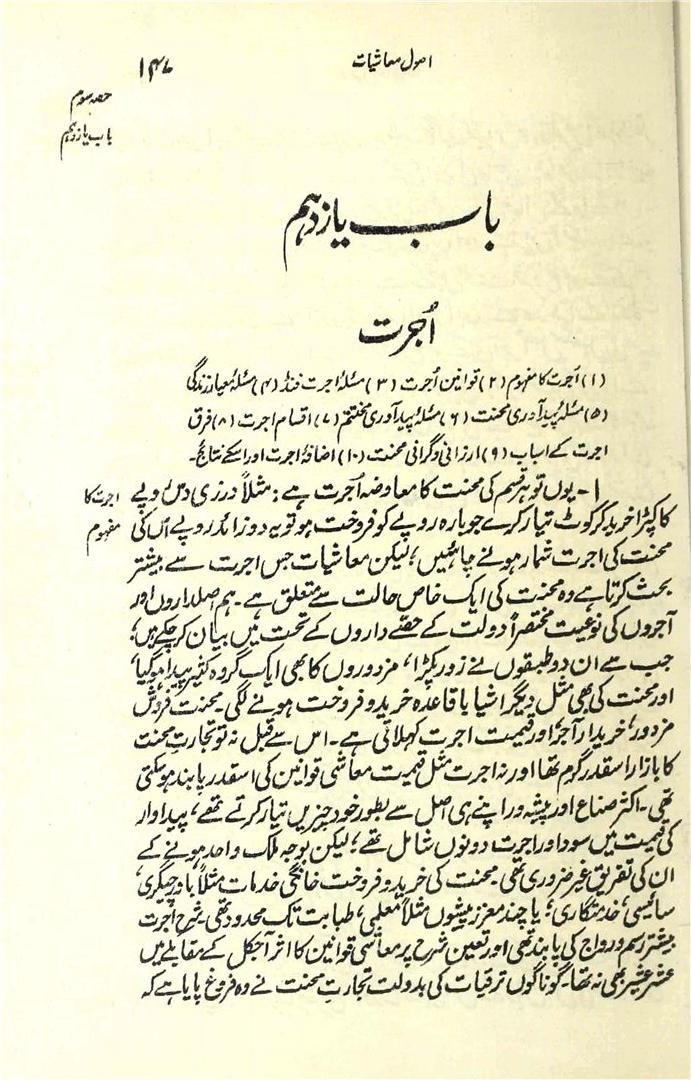 اصول معاشیات ۱۴۷
حصہ سوم
باب یازدہم
باب یازدہم
اُجرت
(۱) اُجرت کا مفہوم (۲) قوانین اُجرت (۳) مسئلہ اجرت فنڈ (۴) مسئلہ معیار زندگی
(۵) مسئلہ پیدآوری محنت (۶) مسئلہ پیدآوری مختتم (۷) اقسام اجرت (۸) فرق
اجرت کے اسباب (۹) ارزانی و گرانی محنت (۱۰) اضافۂ اجرت اور اسکے نتائج۔
اجرت کا
مفہوم
۱۔ یوں تو ہر قسم کی محنت کا معاوضہ اُجرت ہے : مثلاً درزی دس روپے
کا کپڑا خرید کر کوٹ تیار کرے جو بارہ روپے کو فروخت ہو تو یہ دو زائد روپے اُس کی
محنت کی اجرت شمار ہونے چاہئیں ؛ لیکن معاشیات جس اجرت سے بیشتر
بحث کرتا ہے وہ محنت کی ایک خاص حالت سے متعلق ہے۔ ہم اصلداروں اور
آجروں کی نوعیت مختصراً دولت کے حصّے داروں کے تحت میں بیان کر چکے ہیں؛
جب سے ان دو طبقوں نے زور پکڑا، مزدوروں کا بھی ایک گروہ کثیر پیدا ہو گیا،
اور محنت کی بھی مثل دیگر اشیا باقاعدہ خرید و فروخت ہونے لگی۔ محنت فروش
مزدور، خریدار آجر اور قیمت اجرت کہلاتی ہے۔ اس سے قبل نہ تو تجارتِ محنت
کا بازار اسقدر گرم تھا اور نہ اجرت مثل قیمت معاشی قوانین کی اسقدر پابند ہو سکتی
تھی۔ اکثر صناع اور پیشہ ور اپنے ہی اصل سے بطور خود چیزیں تیار کرتے تھے، پیداوار
کی قیمت میں سود اور اجرت دونوں شامل تھے؛ لیکن بوجہ ملک واحد ہونے کے
ان کی تفریق غیر ضروری تھی۔ محنت کی خرید و فروخت خانگی خدمات مثلاً باورچیگری،
سائیسی، خدمتگاری، یا چند معزز پیشوں مثلاً معلمی، طبابت تک محدود تھی۔ شرح اجرت
بیشتر رسم و رواج کی پابند تھی اور تعین شرح پر معاشی قوانین کا اثر آجکل کے مقابلے میں
عشر عشیر بھی نہ تھا۔ گوناگوں ترقیات کی بدولت تجارتِ محنت نے وہ فروغ پایا ہے کہ